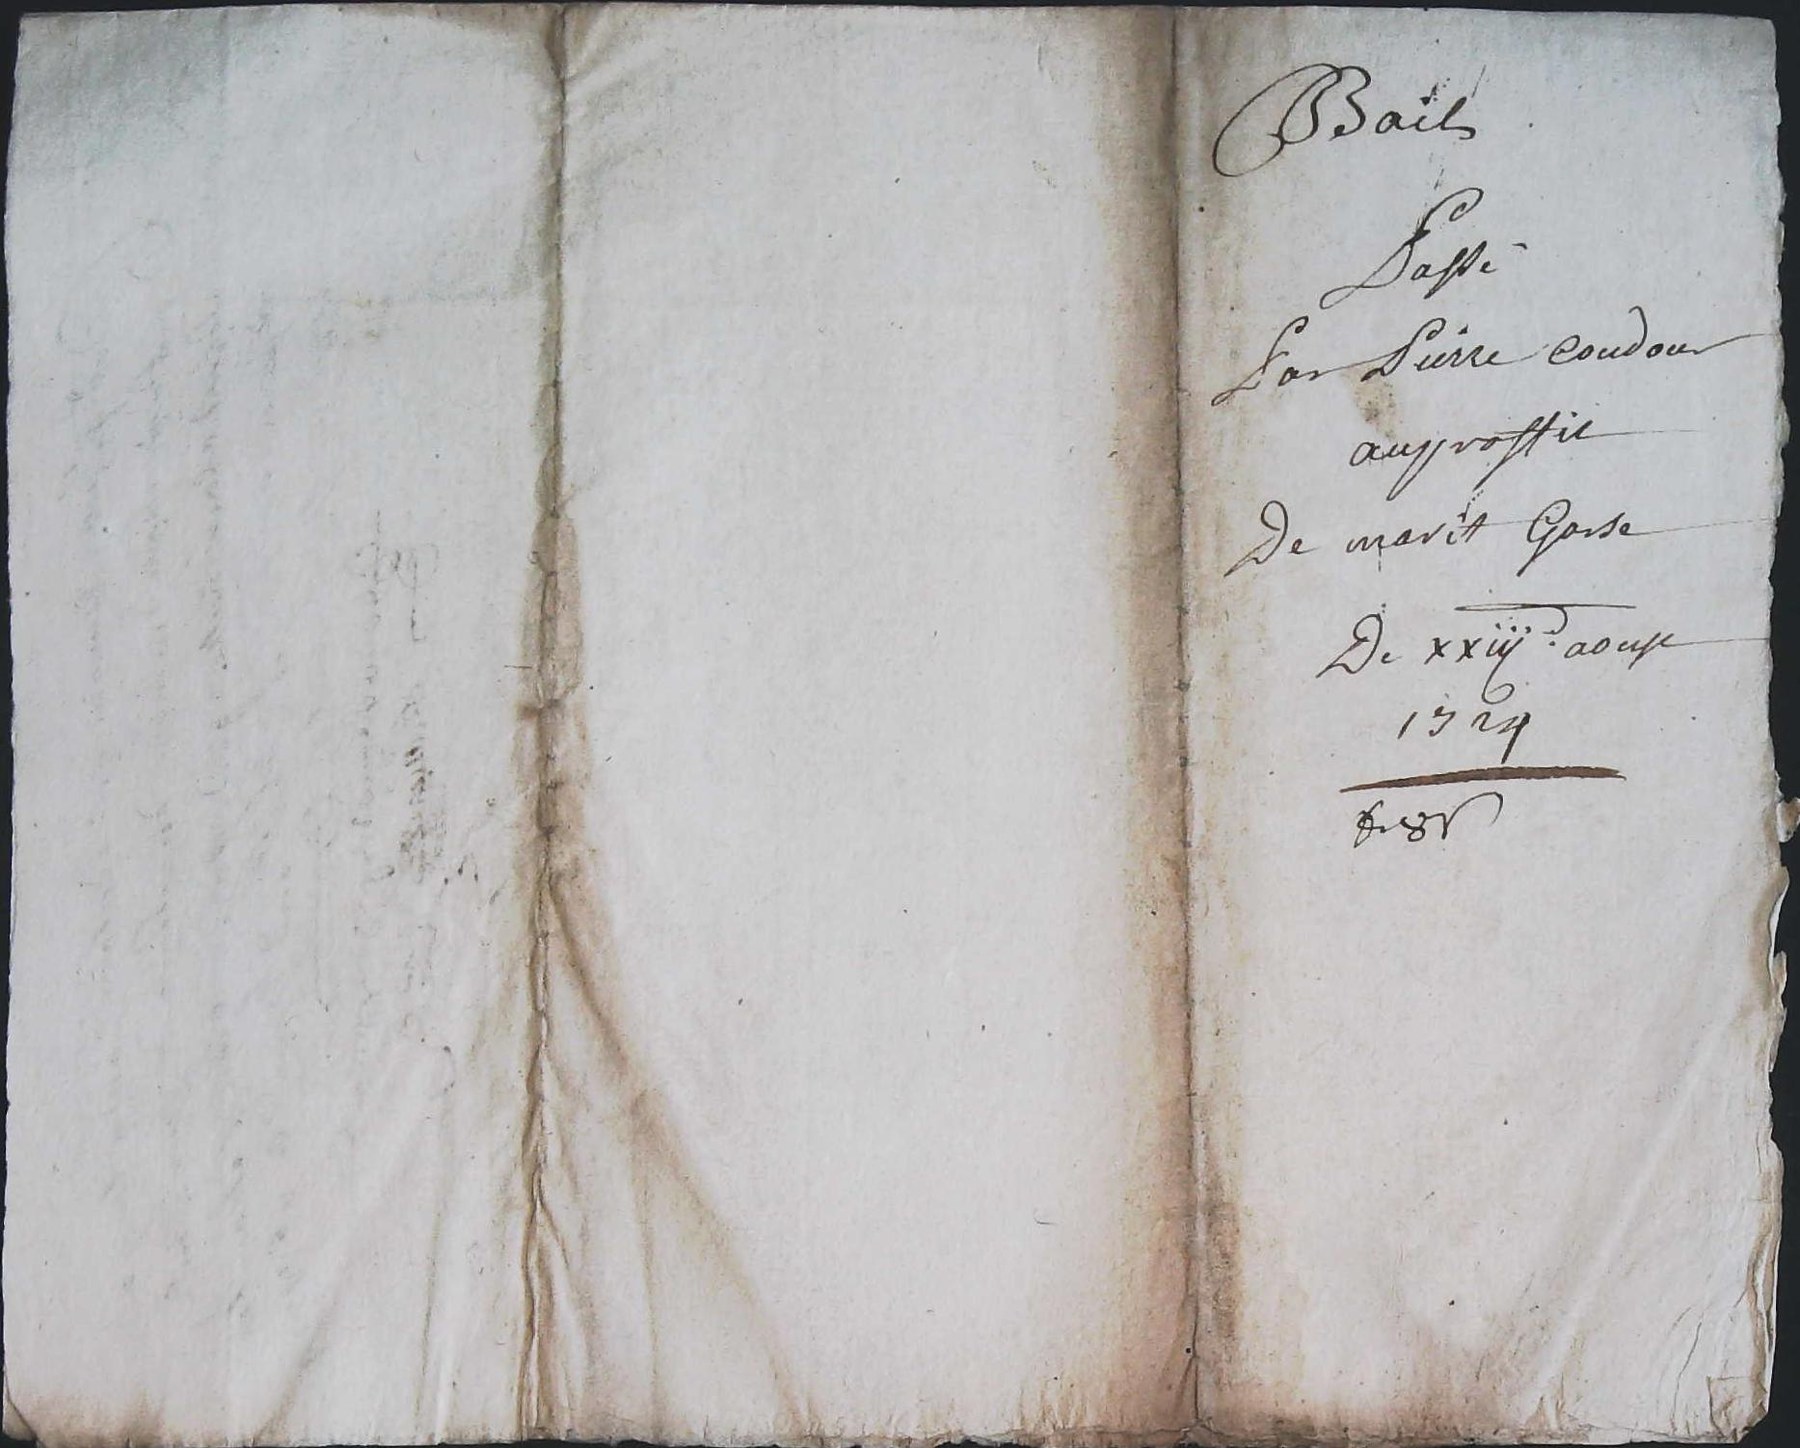 Bail
Passé
Par Pierre Coudour
au proffit
De marit Gorse
De xxiij aoust
1724